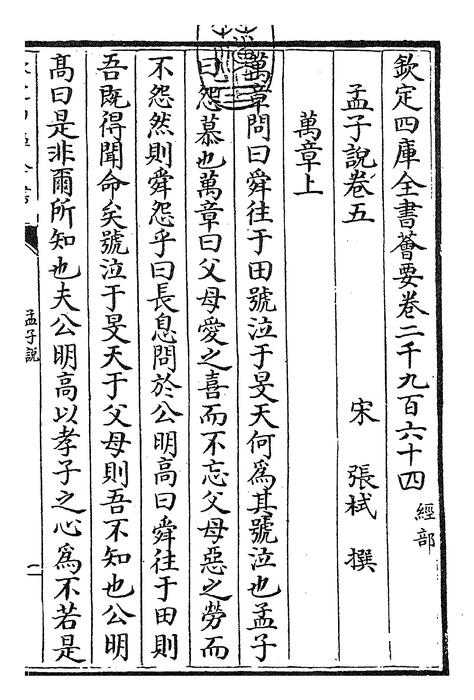 欽定四庫全書薈要卷二千九百六十四
經部
孟子說卷五
宋 張栻 撰
萬章上
萬章問曰舜往于田號泣于旻天何為其號泣也孟子
曰怨慕也萬章曰父母愛之喜而不忘父母惡之勞而
不怨然則舜怨乎曰長息問於公明高曰舜往于田則
吾既得聞命矣號泣于旻天于父母則吾不知也公明
髙曰是非爾所知也夫公明高以孝子之心為不若是
孟子說